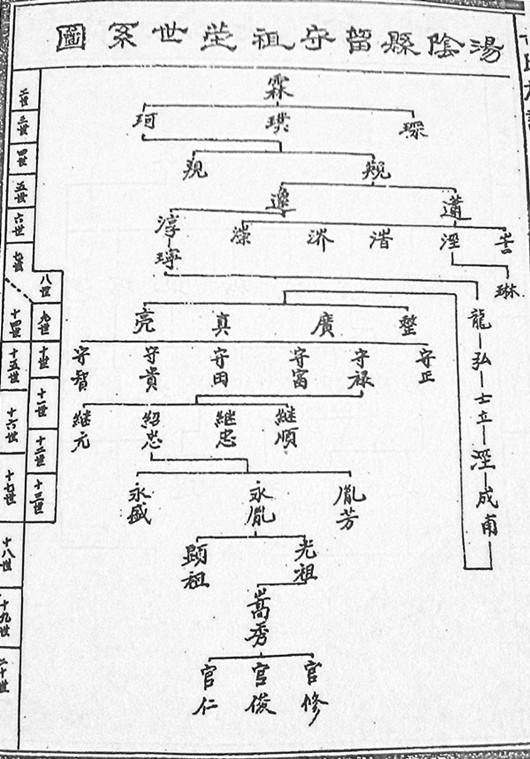 湯陰縣留守祖塋世系圖
二世
三世
四世
五世
六世
七世
八世
九世
十世
十一世
十二世
十三世
十四世
十五世
十六世
十七世
十八世
十九世
二十世
霖
琛 珙 珂
覜 覌
道 逸
淫 渚 济 漆 淳
琳 㻏
龍
弘
士立
淫
成甫
整 廣 真 亮
守正 守禄 守富 守田 守貴 守智
継順 継忠 紹忠 継元
胤芳 永胤 永盛
光祖 顕祖
嵩秀
官修 官俊 官仁